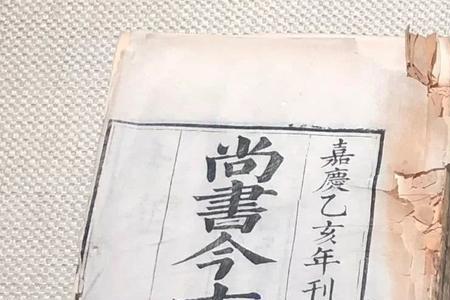 嘉慶乙亥年刊
尚書今